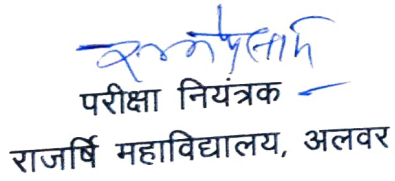 परीक्षा नियंत्रक
राजर्षि महाविद्यालय, अलवर